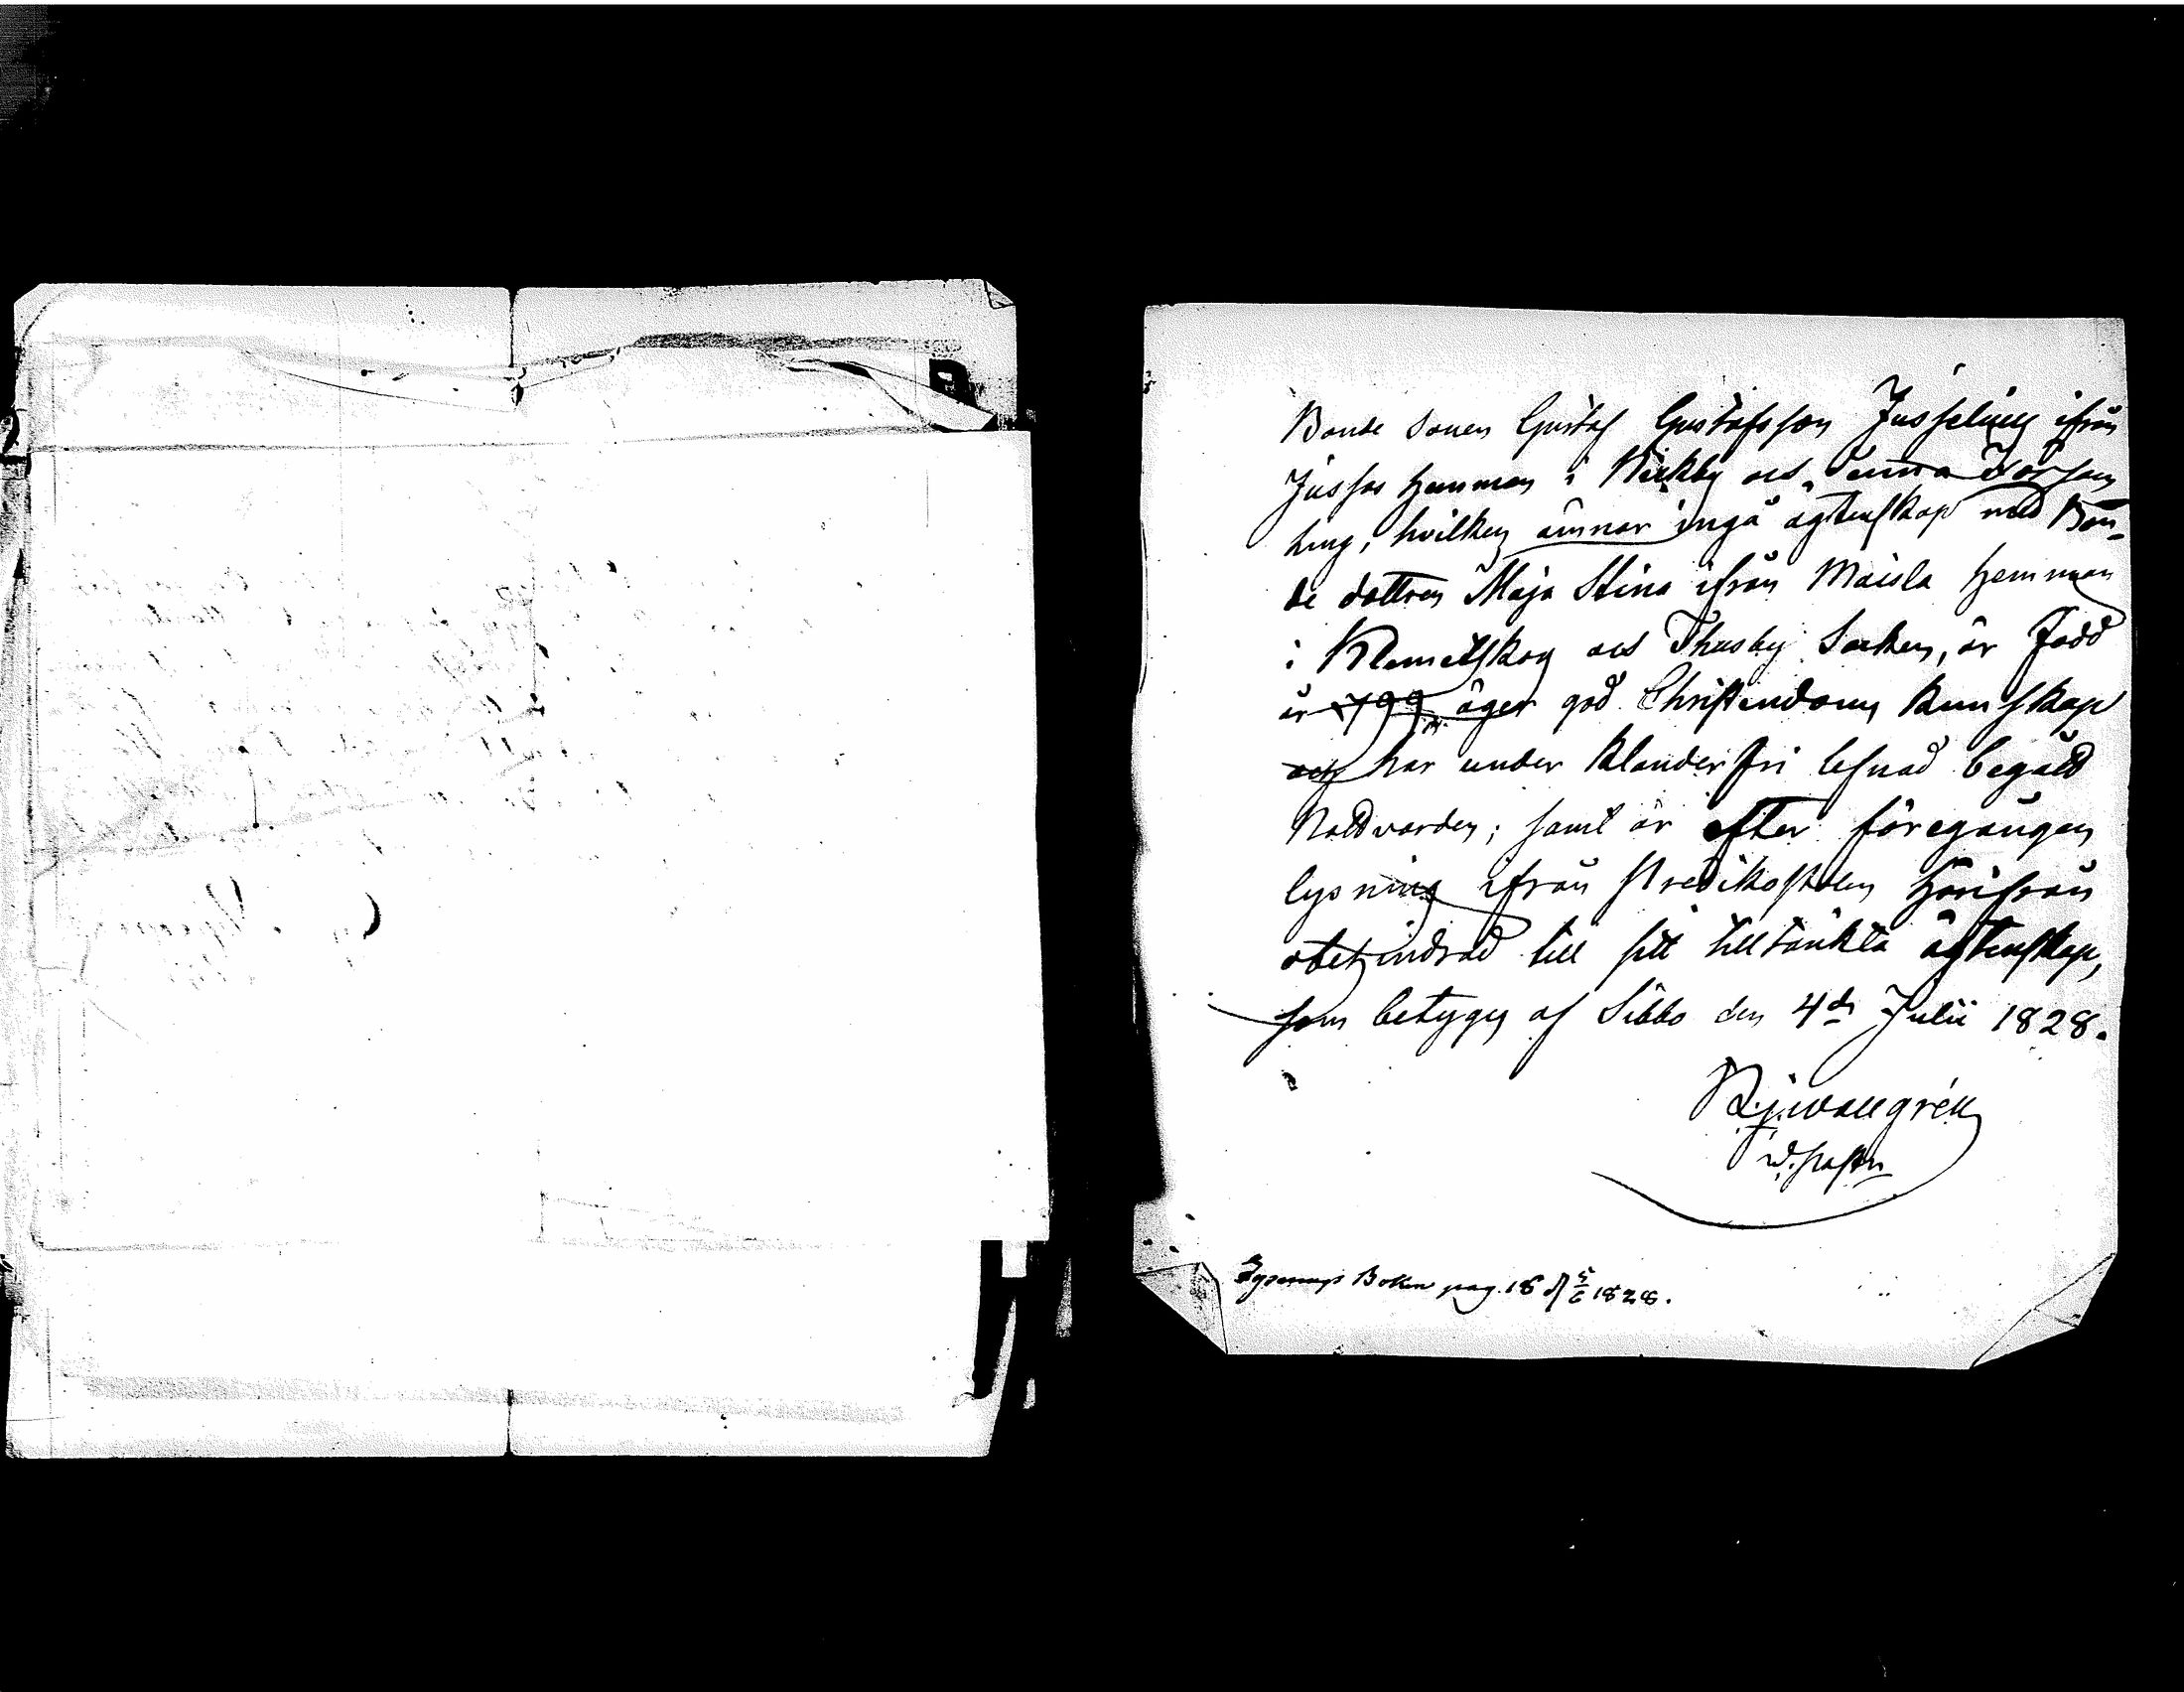 Bonde Sonen Gustaf Gustafsson Jusseling ifrån
Jussas Hemman i Nickby och denna Församl
ling, hvilken ämnar ingå ägtenskap med Bon-
de dottren Maja Stina ifrån Maisla Hemman
i Klemetskog och Thusby Socken, är Född
år 1799, äger god Christendoms kunskap
och har under klanderfri lefnad begådt
Nattvarden; samt är efter föregången
lysning ifrån Predikostolen härifrån
obehindrad till sitt tilltänkta ägtenskap,
som betygas af Sibbo den 4de Julii 1828.
wallgrén
v. pastor
Lysnings Boken pag. 18 1828.